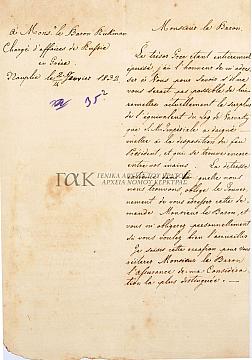 à Mons.r le Baron Rukman
Chargé d'affaires de Russie
en Grèce
Nauplie le 2/14 Février 1832
No 35
Monsieur le Baron.
Le trésor Grec étant entièrement
épuisé, j'ai l'honneur de m'adres
ser à Vous pour savoir s'il ne
vous serait pas possible de lui
remettre actuellement le surplus
de l'équivalent du Leg de
que S. M. Impériale a daigné
mettre à la disposition du feu
Président, et qui se trouve encore
entre vos mains. La détresse
dans la quelle nous
nous trouvons oblige le Gouver
nement de vous adresser cette de
mande Monsieur le Baron, et
vous m'obligerez personnellement
si vous voulez bien l'accueillir.
Je saisis cette occasion pour vous
réitérer Monsieur le Baron
l'assurance de ma Considéra
tion la plus distinguée.
ΓΑΚ ΓΕΝΙΚΑ ΑΡΧΕΙΑ ΤΟΥ ΚΡΑΤΟΥΣ
ΑΡΧΕΙΑ ΝΟΜΟΥ ΚΕΡΚΥΡΑΣ